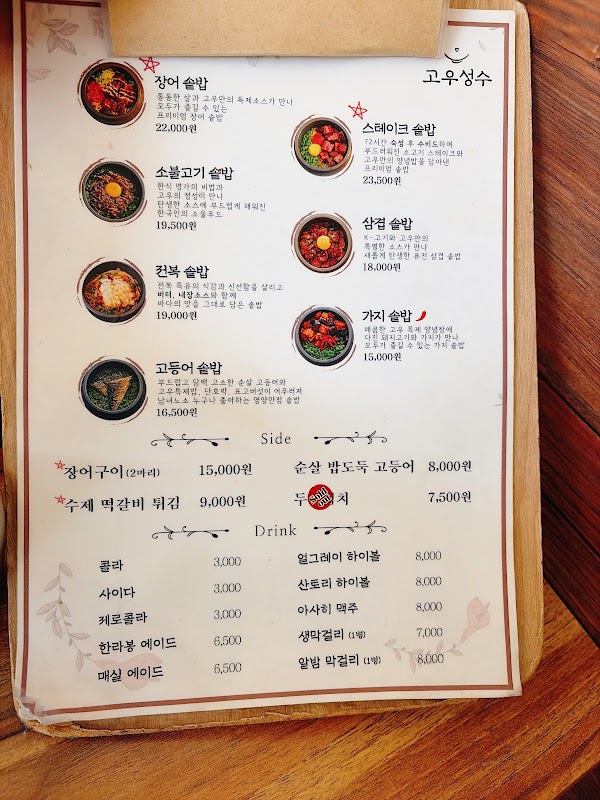 고우성수
장어 솥밥
통통한 살과 고우만의 특제소스가 만나
모두가 즐길 수 있는
프리미엄 장어 솥밥
22,000원
스테이크 솥밥
72시간 숙성 후 수비드하여
부드러워진 소고기 스테이크와
고우만의 양념밥을 담아낸
프리미엄 솥밥
23,500원
소불고기 솥밥
한식 명가의 비법과
고우의 정성이 만나
탄생한 소스에 부드럽게 재워진
한국인의 소울푸드
19,500원
삼겹 솥밥
K-고기와 고우만의
특별한 소스가 만나
새롭게 탄생한 퓨전 삼겹 솥밥
18,000원
전복 솥밥
전복 특유의 식감과 신선함을 살리고
버터, 내장소스와 함께
바다의 맛을 그대로 담은 솥밥
19,000원
가지 솥밥
매콤한 고우 특제 양념장에
다진 돼지고기와 가지가 만나
모두가 즐길 수 있는 가지 솥밥
15,000원
고등어 솥밥
부드럽고 담백 고소한 순살 고등어와
고우특제밥, 단호박, 표고버섯이 어우러져
남녀노소 누구나 좋아하는 영양만점 솥밥
16,500원
Side
장어구이(2마리) 15,000원
순살 밥도둑 고등어 8,000원
수제 떡갈비 튀김 9,000원
두 Sold out 치 7,500원
Drink
콜라 3,000
사이다 3,000
제로콜라 3,000
한라봉 에이드 6,500
매실 에이드 6,500
얼그레이 하이볼 8,000
산토리 하이볼 8,000
아사히 맥주 8,000
생막걸리 (1병) 7,000
알밤 막걸리 (1병) 8,000